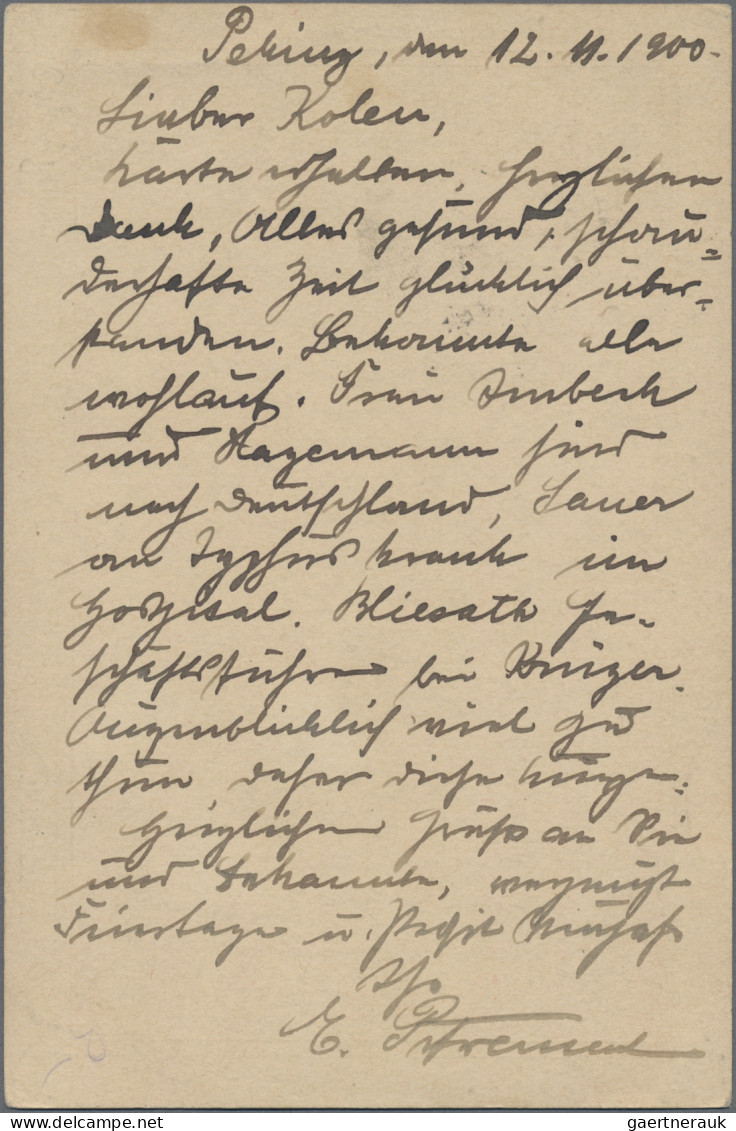 Peking, den 12. 11. 1900.
Lieber Kolen,
Karte erhalten, herzlichen
Dank, Alles gesund, schau=
derhafte Zeit glücklich über=
standen. Bekannte alle
wohlauf. Frau Imbeck
und Hagemann sind
nach Deutschland, Lauer
an Typhus krank im
Hospital. Bliesath Ge-
schäftsführer bei Krüger.
Augenblicklich viel zu
thun daher diese Kürze.
Herzlichen Gruß an Sie
und Bekannte, vergnügte
Feiertage u. Prosit Neujahr
Ihr
E.
gaertnerauk